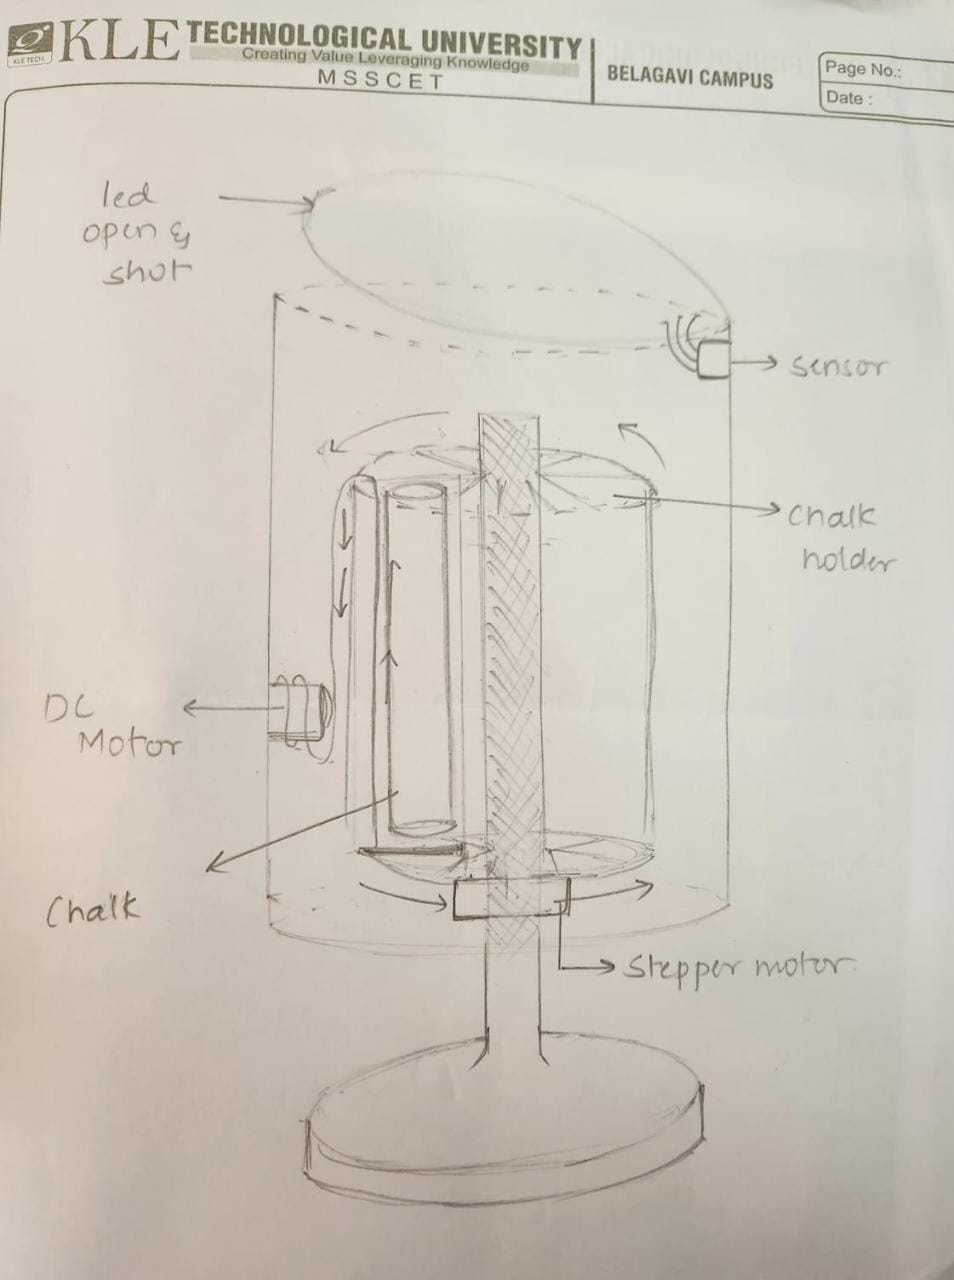 KLE TECHNOLOGICAL UNIVERSITY
KLE TECH.
Creating Value Leveraging Knowledge
MSSCET
BELAGAVI CAMPUS
Page No.:
Date :
led
open &
shut
sensor
Chalk
holder
DC
Motor
Chalk
Stepper motor